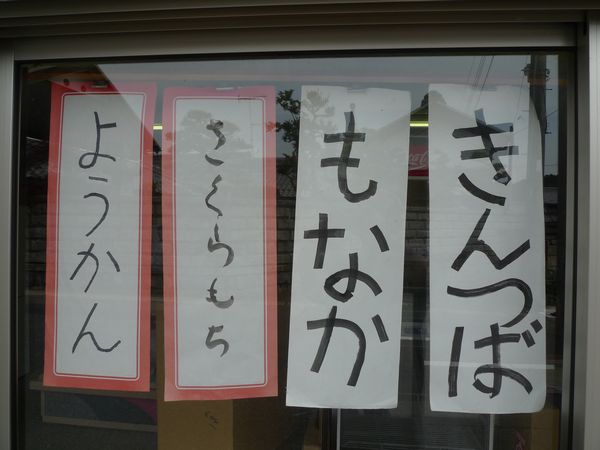 きんつば
もなか
さくらもち
ようかん